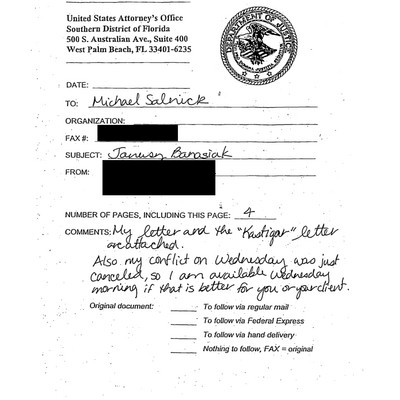 United States Attorney's Office
Southern District of Florida
500 S. Australian Ave., Suite 400
West Palm Beach, FL 33401-6235
DEPARTMENT OF JUSTICE
DATE:
TO: Michael Salnick
ORGANIZATION:
FAX #:
SUBJECT: Janusz Banasiak
FROM:
NUMBER OF PAGES, INCLUDING THIS PAGE: 4
COMMENTS: My letter and the "Kastigar" letter
are attached.
Also my conflict on Wednesday was just
canceled, so I am available Wednesday
morning if that is better for you or your client.
Original document: To follow via regular mail
To follow via Federal Express
To follow via hand delivery
Nothing to follow, FAX = original